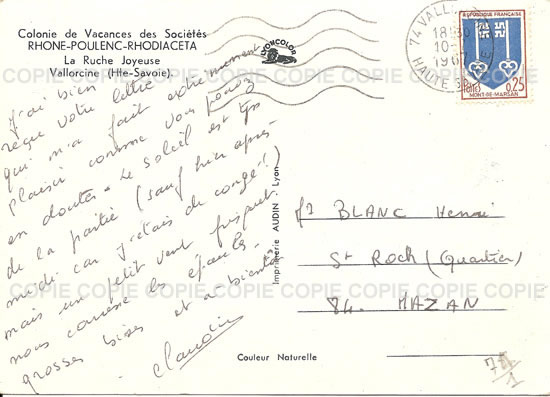 Colonie de Vacances des Sociétés
RHONE-POULENC-RHODIACETA
La Ruche Joyeuse
Vallorcine (Hte-Savoie)
LYONCOLOR
74 VALLORCINE
18H30
10-
196
HAUTE SAVOIE
REPUBLIQUE FRANÇAISE
POSTES
0,25
MONT-DE-MARSAN
J'ai bien
reçue votre lettre
qui m'a fait extrêmement
plaisir comme vous pouvez
en douter. Le soleil est tjs
de la partie (sauf hier après-
midi car j'étais de congé!)
mais un petit vent frisquet
nous caresse les épaules.
grosses bises et a bientôt
Claudine
BLANC Henri
St Roch (Quartier)
84. MAZAN
Imprimerie AUDIN Lyon
Couleur Naturelle
COPIE COPIE COPIE COPIE COPIE COPIE COPIE
COPIE COPIE COPIE COPIE COPIE COPIE COPIE
COPIE COPIE COPIE COPIE COPIE COPIE COPIE